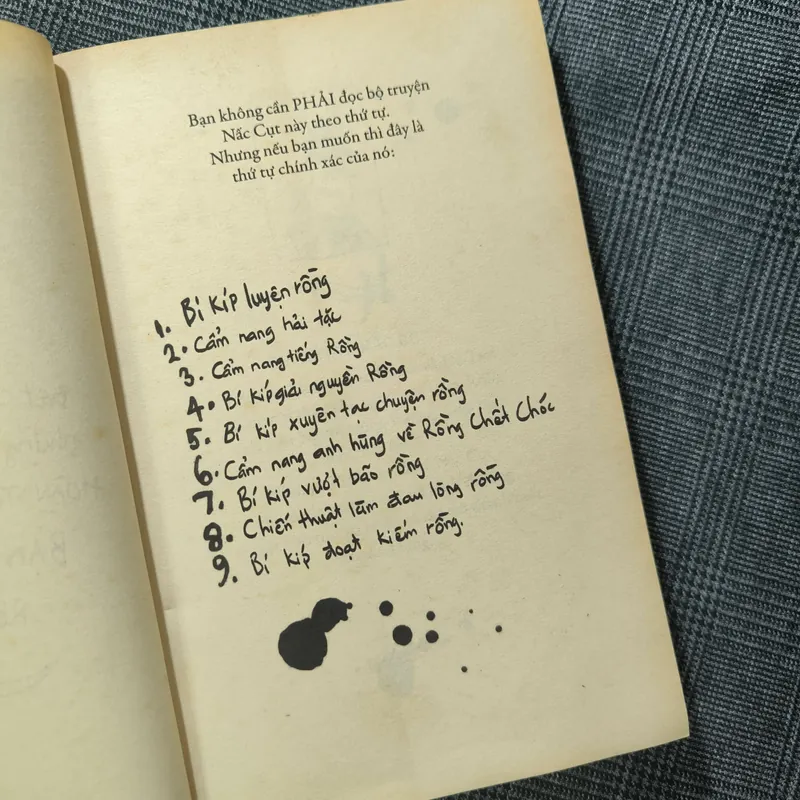 Bạn không cần PHẢI đọc bộ truyện
Nấc Cụt này theo thứ tự.
Nhưng nếu bạn muốn thì đây là
thứ tự chính xác của nó:
1. Bí kíp luyện rồng
2. Cẩm nang hải tặc
3. Cẩm nang tiếng Rồng
4. Bí kíp giải nguyền Rồng
5. Bí kíp xuyên tạc chuyện rồng
6. Cẩm nang anh hùng về Rồng Chết Chóc
7. Bí kíp vượt bão rồng
8. Chiến thuật làm đau lòng rồng
9. Bí kíp đoạt kiếm rồng.